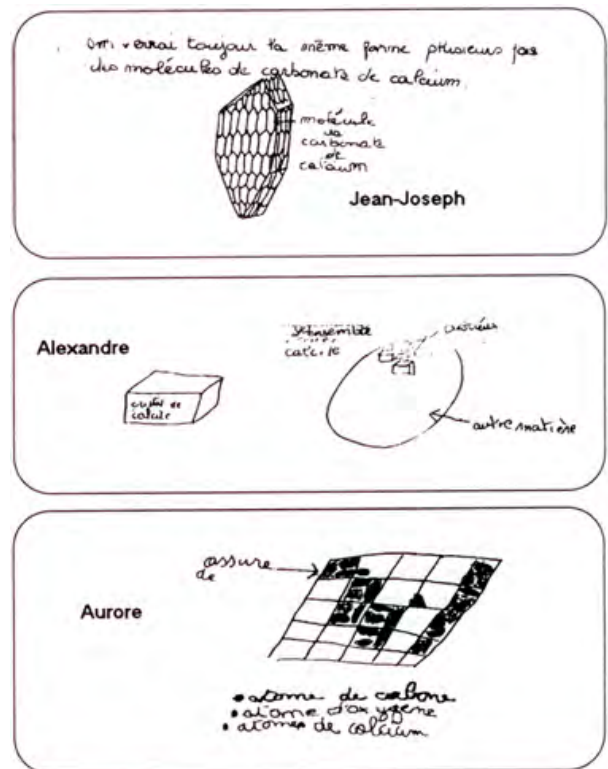 on verrai toujour la même forme plusieurs fois
des molécules de carbonate de calcium.
molécule
de
carbonate
de
calcium
Jean-Joseph
Alexandre
cristal de
calcite
calcite
autre matière
Aurore
assure
de
• atome de carbone
• atome d'oxygène
• atomes de calcium